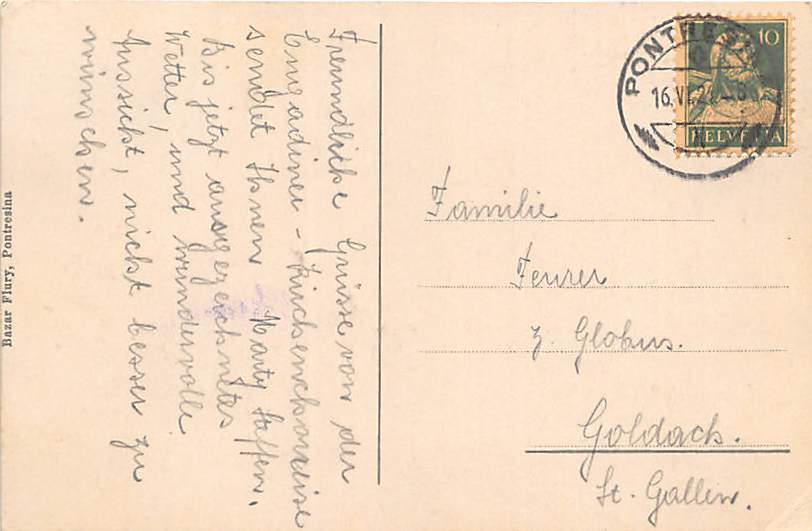 Freundliche Grüsse von der
Engadiner-Kirchenchorreise
sendet Ihnen
Bis jetzt ausgezeichnetes
Wetter, und wundervolle
Aussicht, nicht besser zu
wünschen.
Bazar Flury, Pontresina
PONTRESINA
16.VI.2
10
HELVETIA
Familie
Feurer
z. Globus.
Goldach.
St. Gallen.